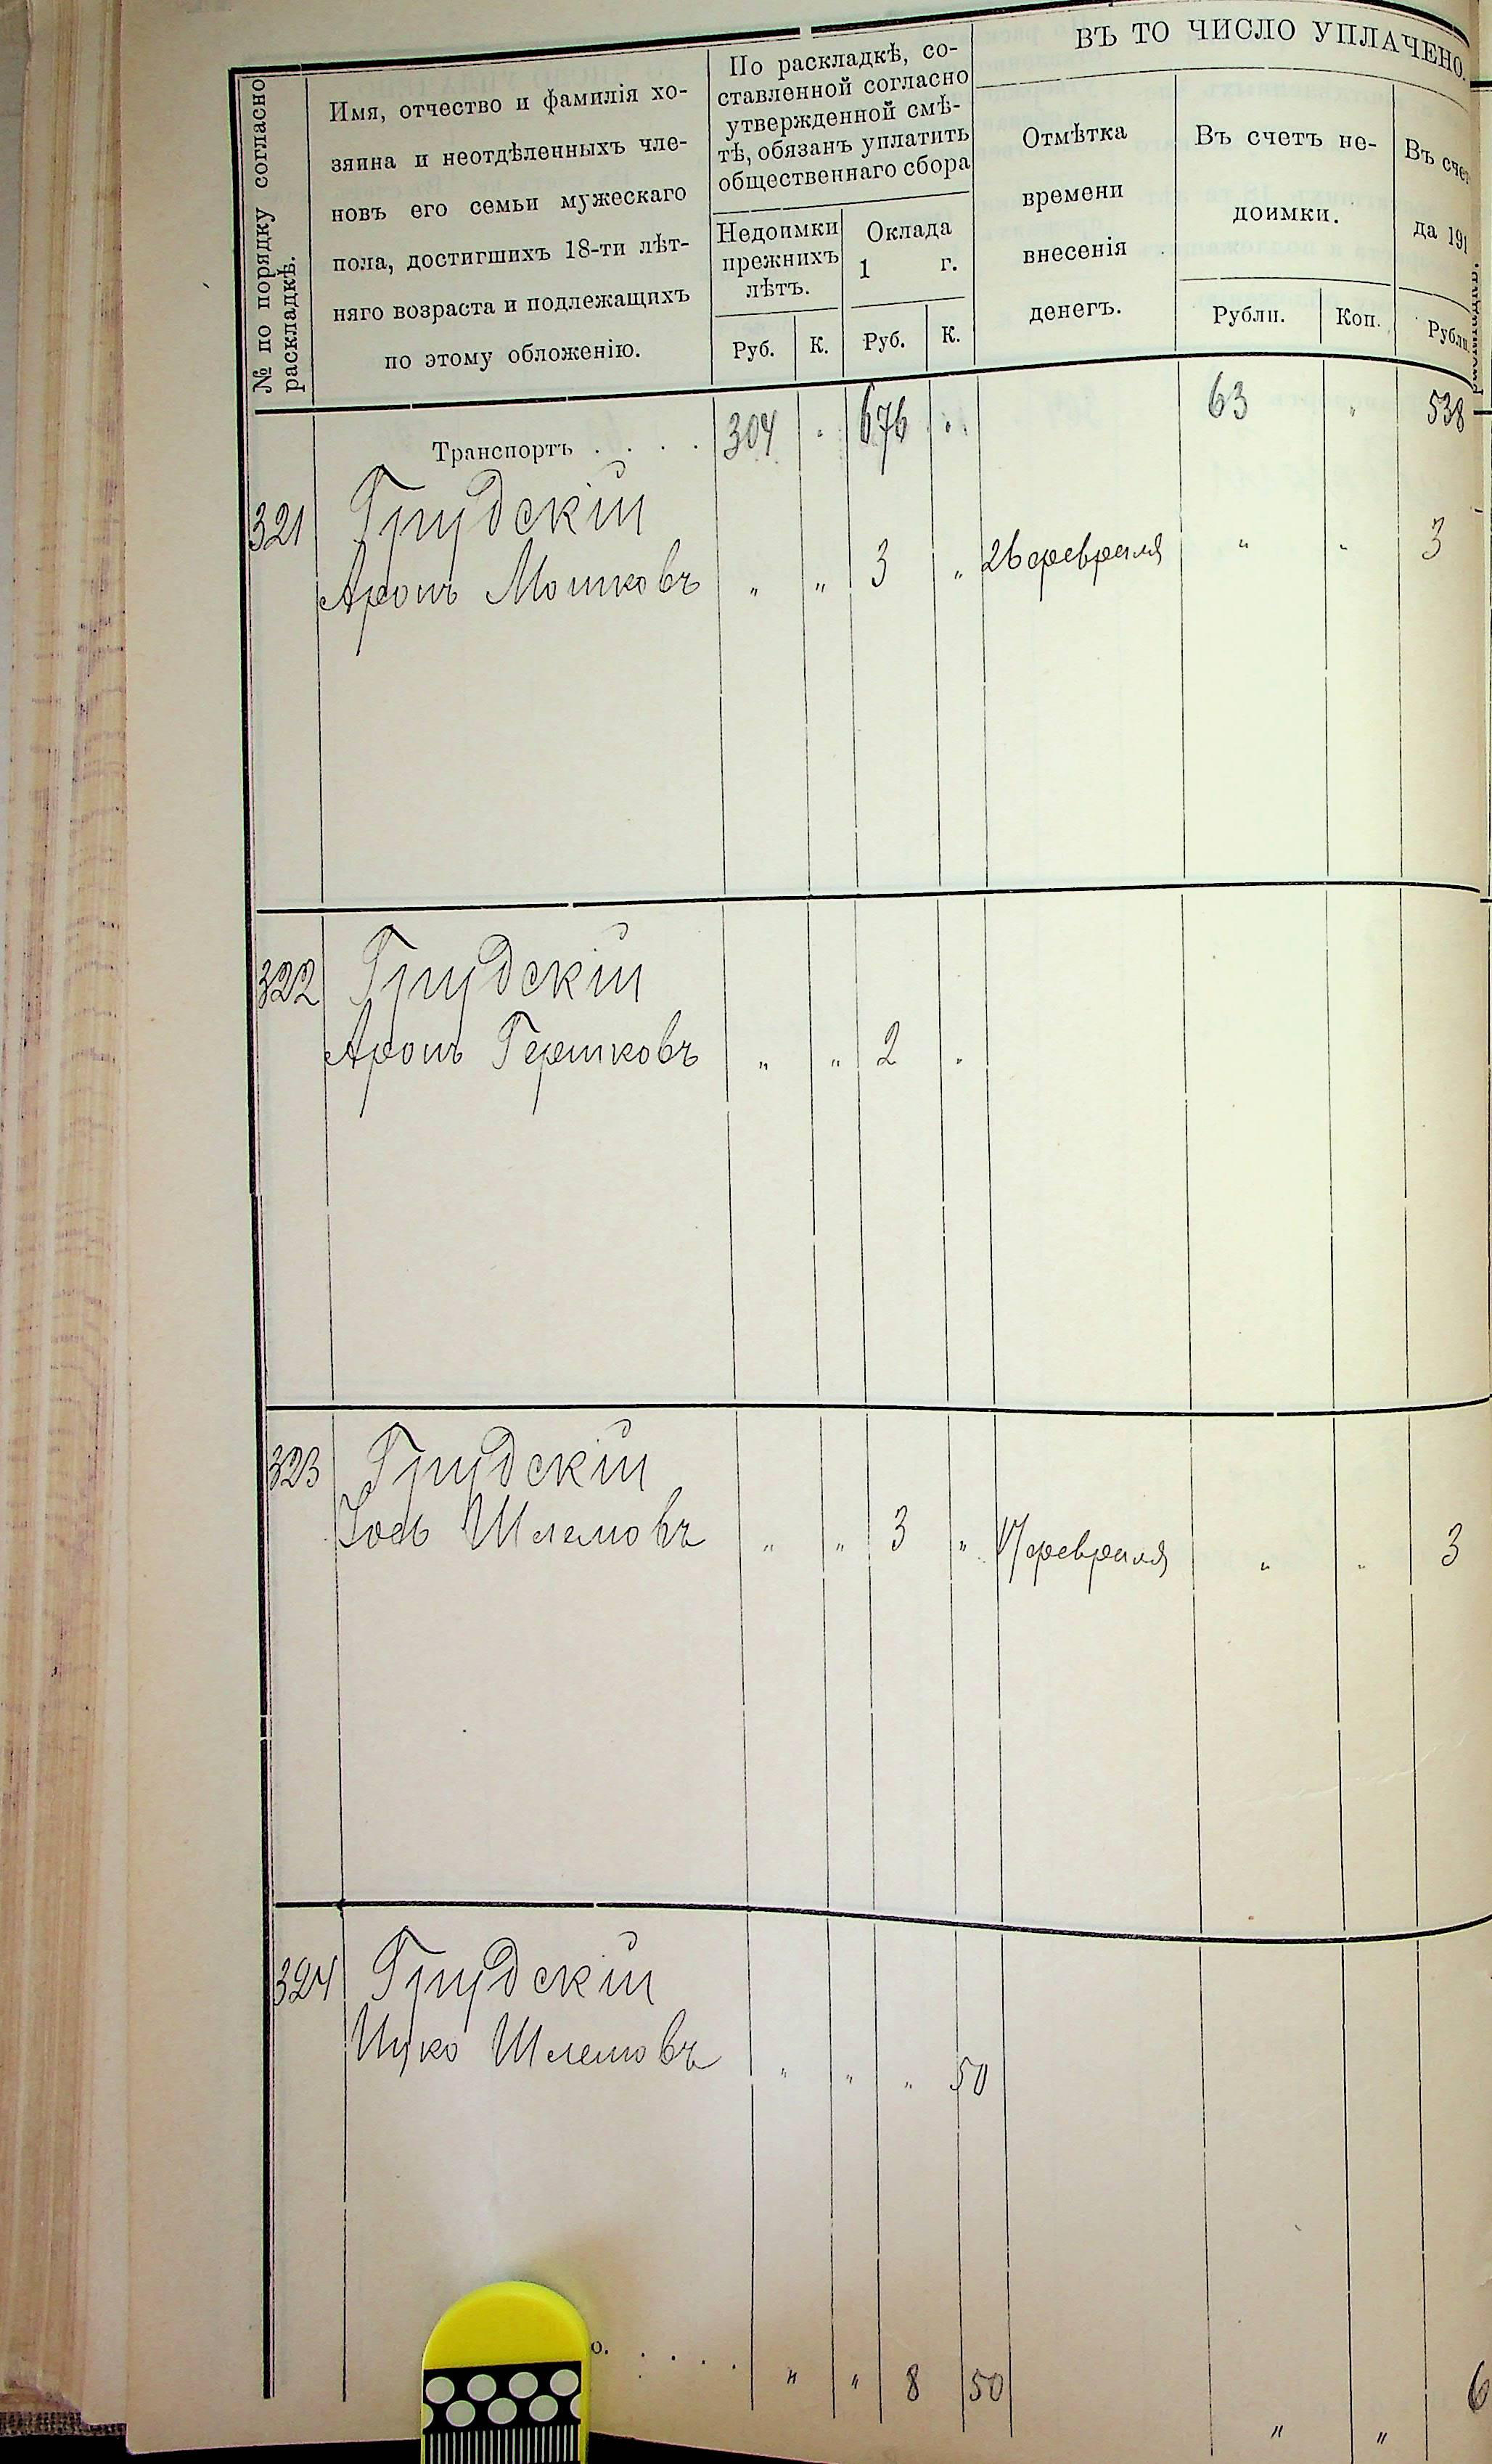 № по порядку согласно
раскладкѣ.
Имя, отчество и фамилія хо-
зяина и неотдѣленныхъ чле-
новъ его семьи мужескаго
пола, достигшихъ 18-ти лѣт-
няго возраста и подлежащихъ
по этому обложенію.
По раскладкѣ, со-
ставленной согласно
утвержденной смѣ-
тѣ, обязанъ уплатить
общественнаго сбора
Недоимки
прежнихъ
лѣтъ.
Оклада
1 г.
Руб. К. Руб. К.
ВЪ ТО ЧИСЛО УПЛАЧЕНО.
Отмѣтка
времени
внесенія
денегъ.
Въ счетъ не-
доимки.
Рубли. Коп.
Въ счет
да 191
Рубли
Транспортъ . . . . 304 " 676 " 63 " 538
321 Грудскій
Аронъ Мошковъ " " 3 " 26 февраля " " 3
322 Грудскій
Аронъ Гершковъ " " 2 "
323 Грудскій
Іось Шлемовъ " " 3 " 17 февраля " " 3
324 Грудскій
Ицко Шлемовъ " " " 50
о. . . . . " " 8 50 " " 6